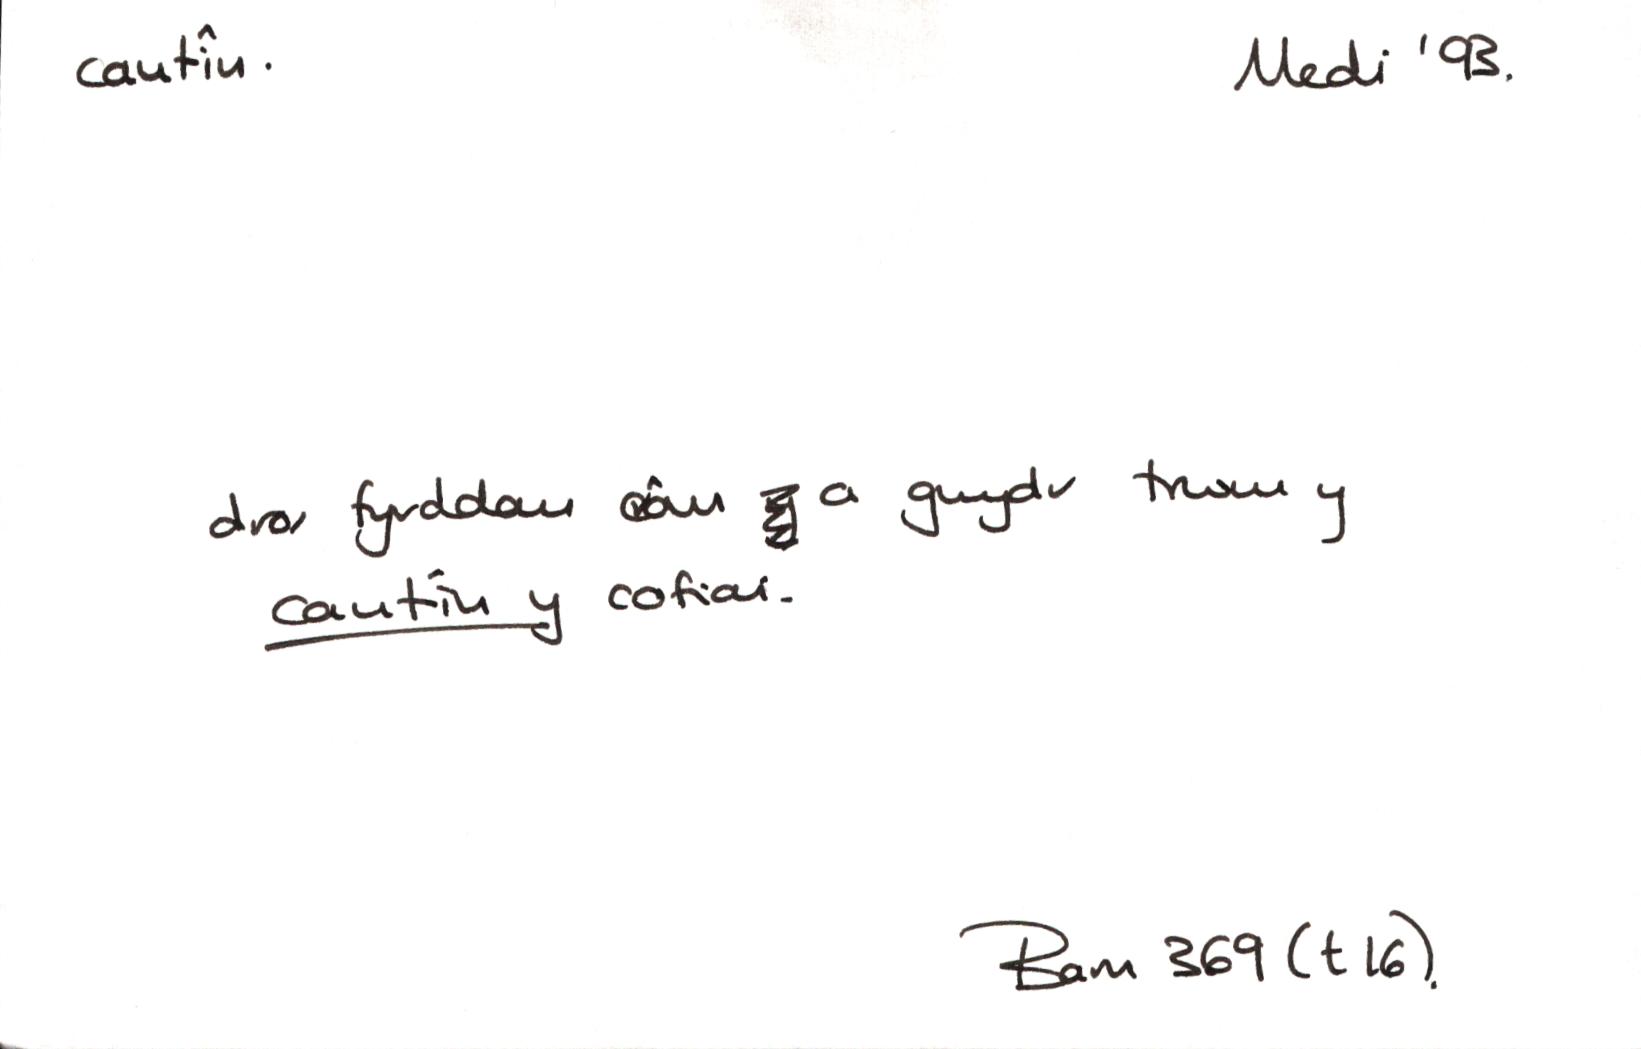 cantîn. Medi '93.
dros fyrddau a gwydr trwm y
cantîn y cofiai.
Barn 369 (t 16).